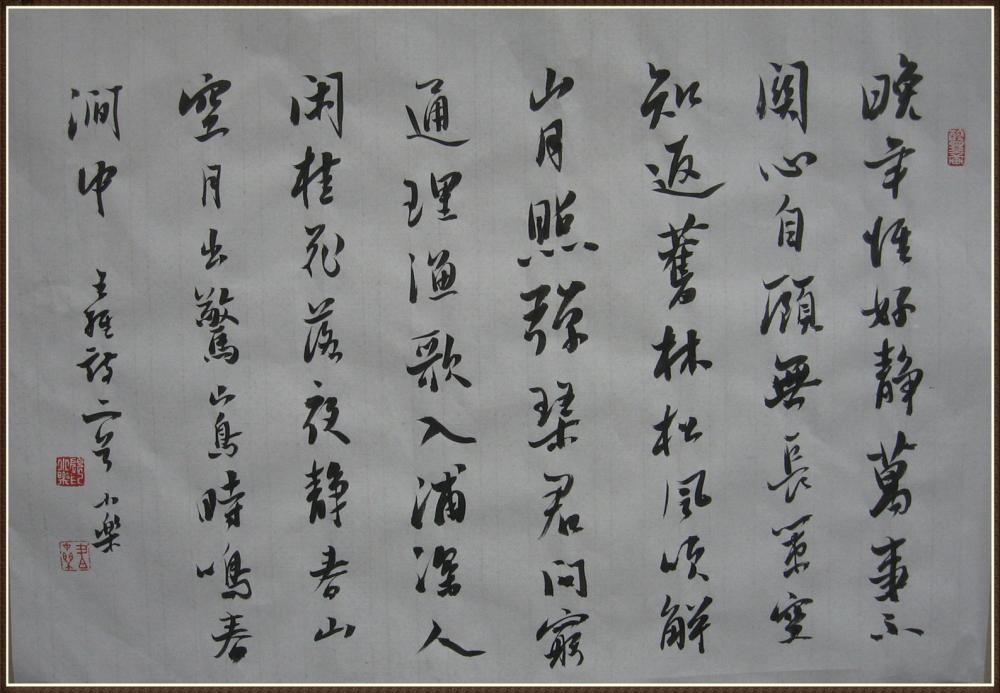 晚年惟好静萬事不
関心自顧無長策空
知返舊林松風吹解
山月照弹琴君问窮
通理渔歌入浦深人
闲桂花落夜静春山
空月出驚山鳥時鳴春
涧中 王維诗二首 小樂